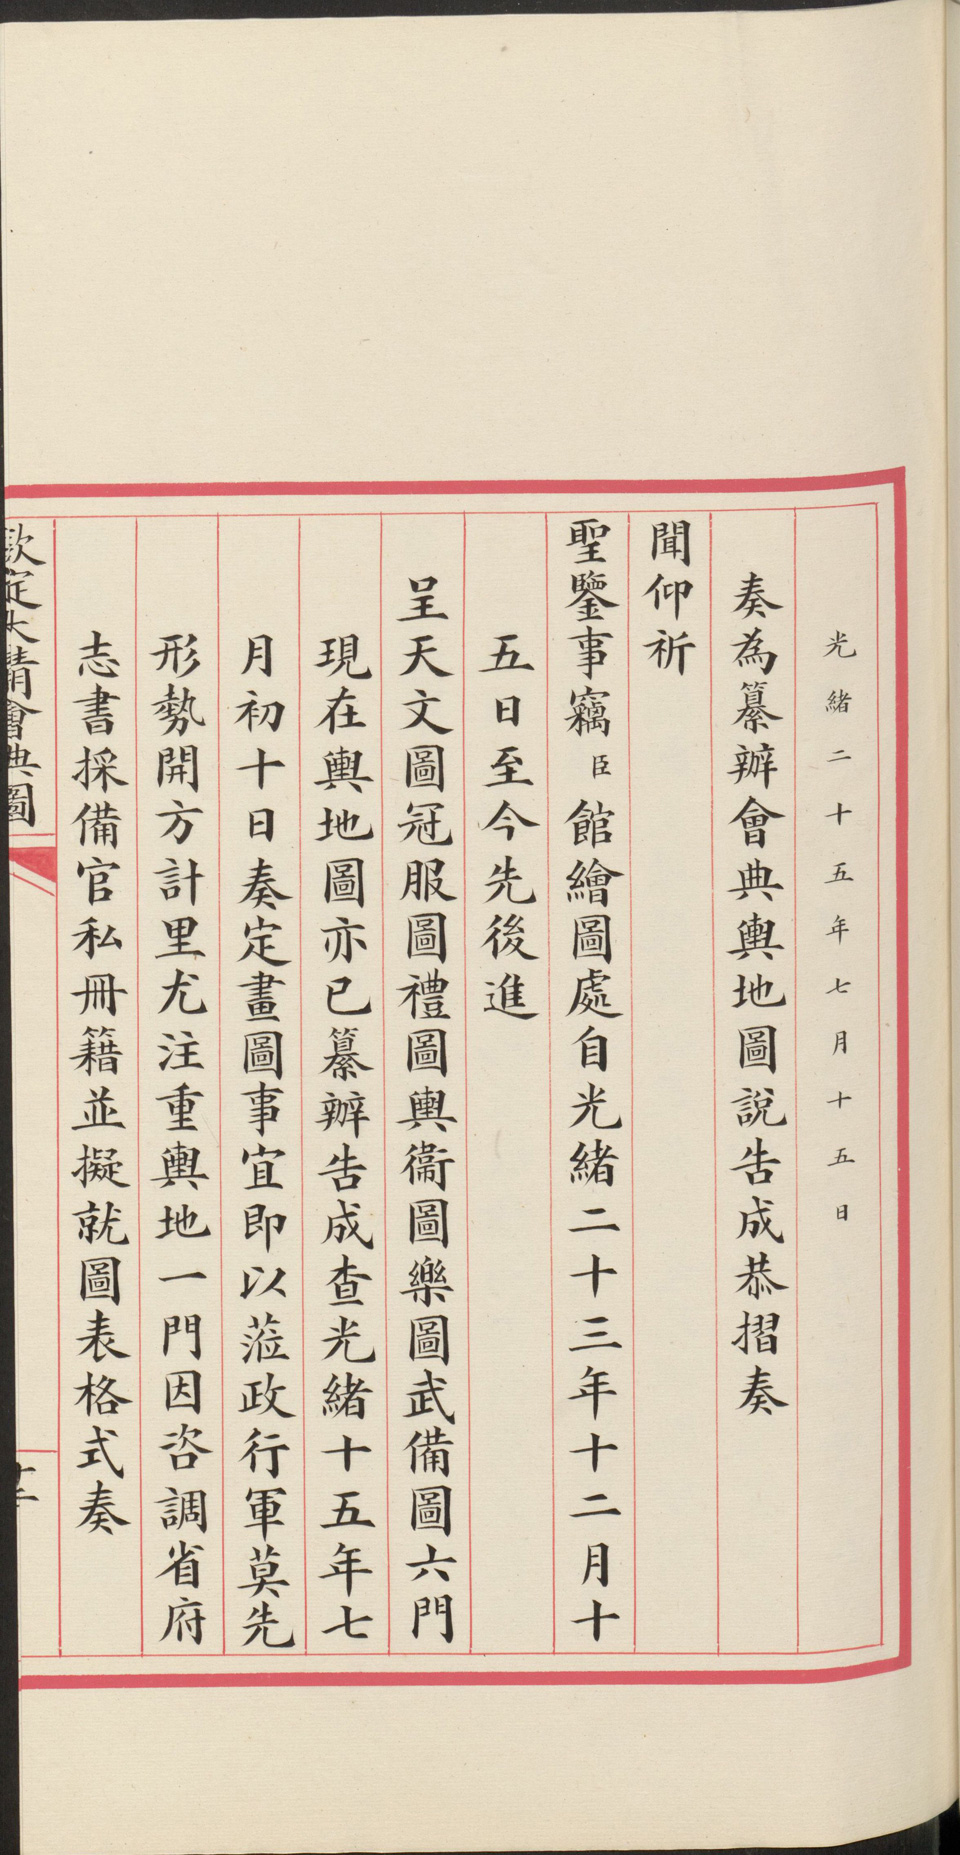 光緒二十五年七月十五日
奏為纂辦會典輿地圖說告成恭摺奏
聞仰祈
聖鑒事竊臣館繪圖處自光緒二十三年十二月十
五日至今先後進
呈天文圖冠服圖禮圖輿衞圖樂圖武備圖六門
現在輿地圖亦已纂辦告成查光緒十五年七
月初十日奏定畫圖事宜即以蒞政行軍莫先
形勢開方計里尤注重輿地一門因咨調省府
志書採備官私冊籍並擬就圖表格式奏
欽定大清會典圖